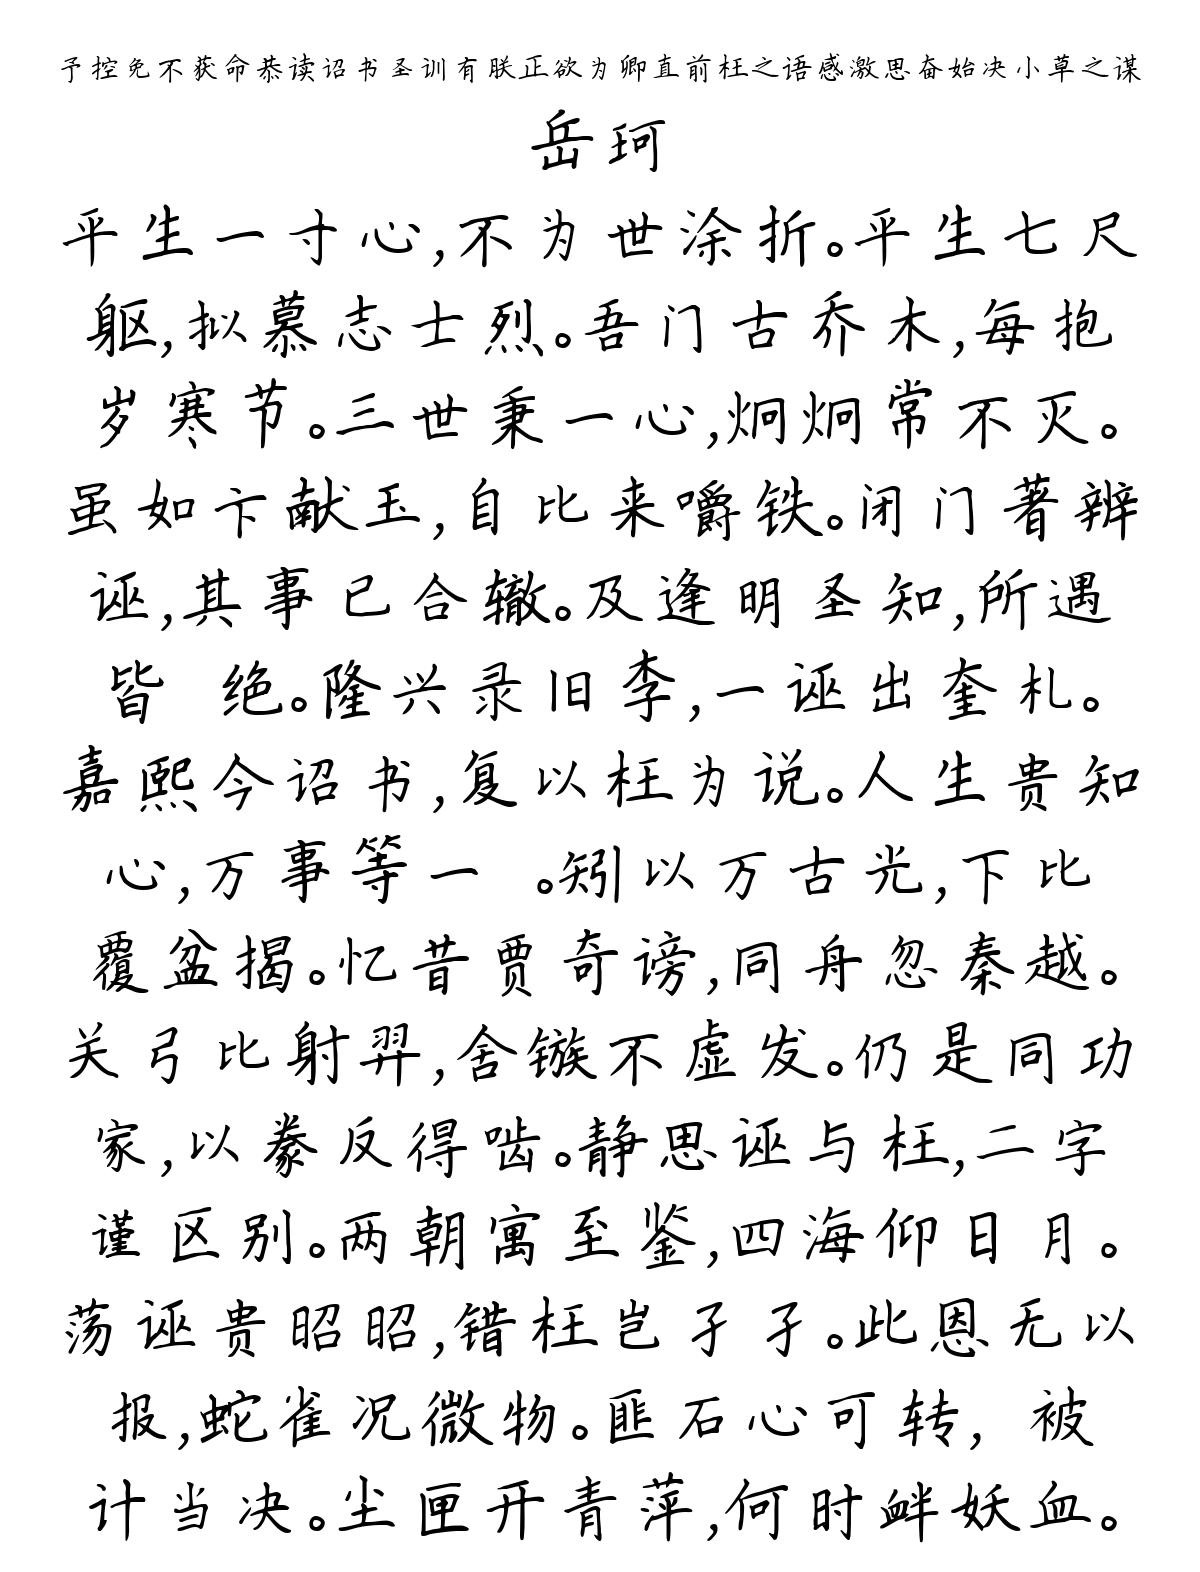 予控免不获命恭读诏书圣训有朕正欲为卿直前枉之语感激思奋始决小草之谋
岳珂
平生一寸心,不为世涂折。平生七尺
躯,拟慕志士烈。吾门古乔木,每抱
岁寒节。三世秉一心,炯炯常不灭。
虽如卞献玉,自比来嚼铁。闭门著辨
诬,其事已合辙。及逢明圣知,所遇
皆 绝。隆兴录旧李,一诬出奎札。
嘉熙今诏书,复以枉为说。人生贵知
心,万事等一 。矧以万古光,下比
覆盆揭。忆昔贾奇谤,同舟忽秦越。
关弓比射羿,舍镞不虚发。仍是同功
家,以豢反得啮。静思诬与枉,二字
谨区别。两朝寓至鉴,四海仰日月。
荡诬贵昭昭,错枉岂孑孑。此恩无以
报,蛇雀况微物。匪石心可转, 被
计当决。尘匣开青萍,何时衅妖血。